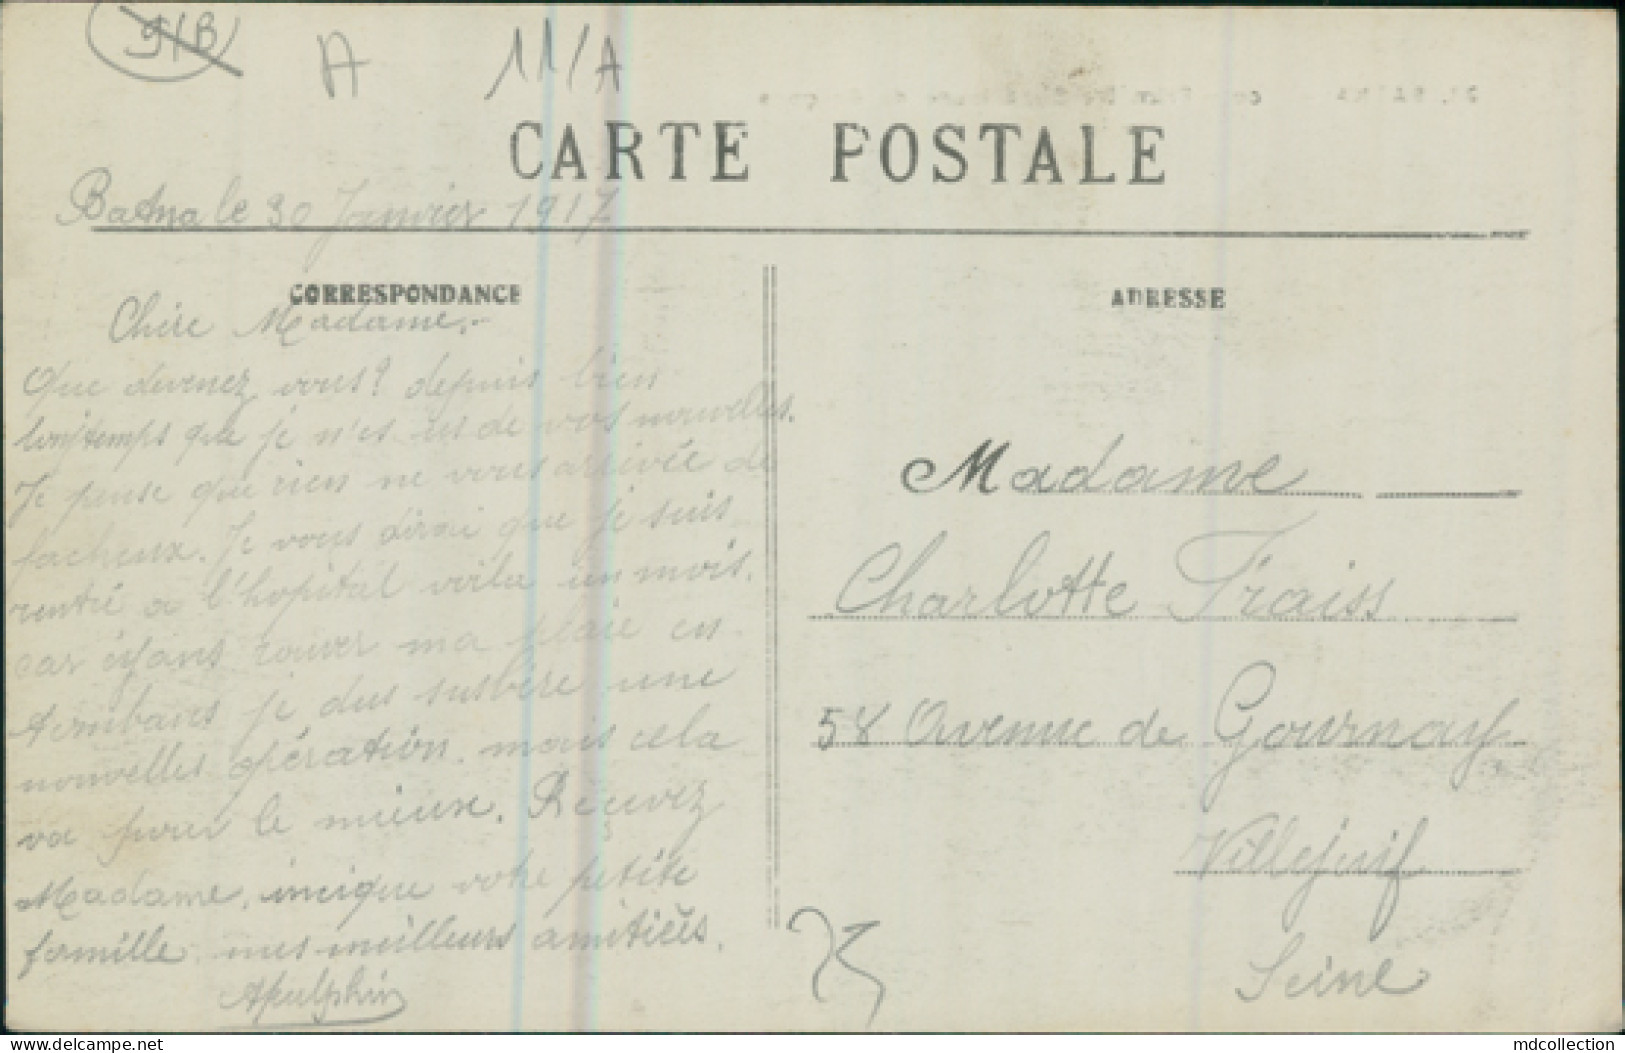 51B
A
11/A
CARTE POSTALE
Batna le 30 Janvier 1917
CORRESPONDANCE
Chère Madame.-
Que devenez vous? depuis bien
longtemps que je n'es eus de vos nouvelles.
Je pense que rien ne vous arrivée de
facheux. Je vous dirai que je suis
rentré a l'hopital voila un mois.
car éyans rouver ma plaie en
tombans je dus subire une
nouvelles opération. mais cela
va pour le mieux. Recevez
Madame, insique votre petite
famille. mes meilleurs amitiés.
ADRESSE
Madame
Charlotte Fraiss
58 Avenue de Gournay
Villejuif
Seine
mdcollection